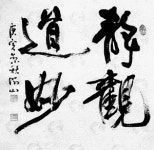 靜觀
道妙
庚寅